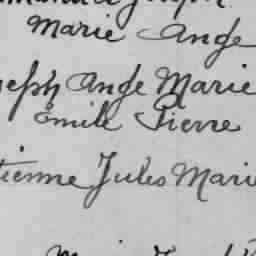 Marie Ange
Joseph Ange Marie
Emile Pierre
Etienne Jules Marie